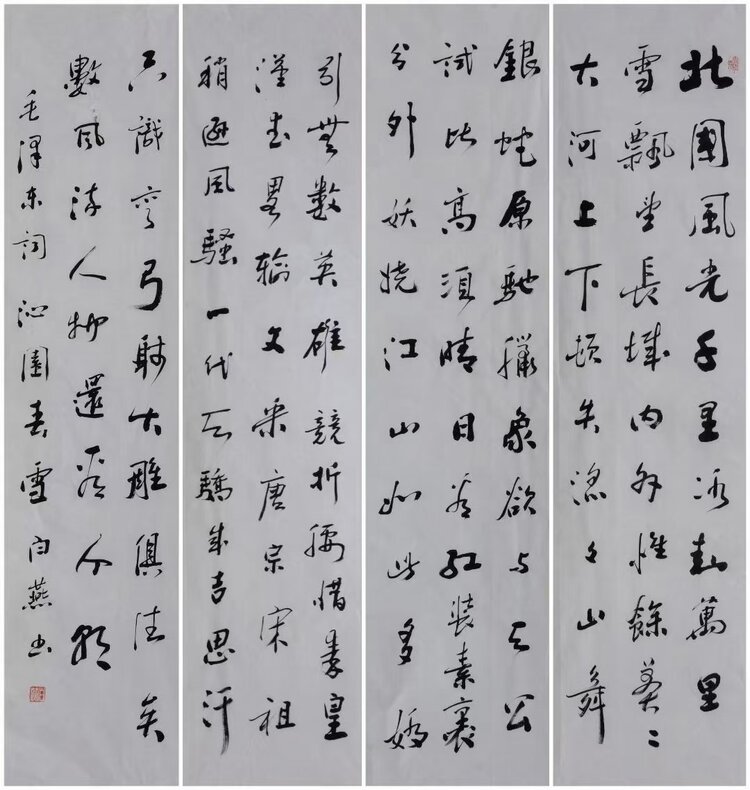 北國風光千里冰封萬里
雪飄望長城內外惟餘莽〻
大河上下頓失滔〻山舞
銀蛇原馳臘象欲與天公
試比高須晴日看紅裝素裹
分外妖嬈江山如此多嬌
引無數英雄競折腰惜秦皇
漢武略輸文采唐宗宋祖
稍遜風騷一代天驕成吉思汗
只識彎弓射大雕俱往矣
數風流人物還看今朝
毛澤東詞沁園春雪白燕書